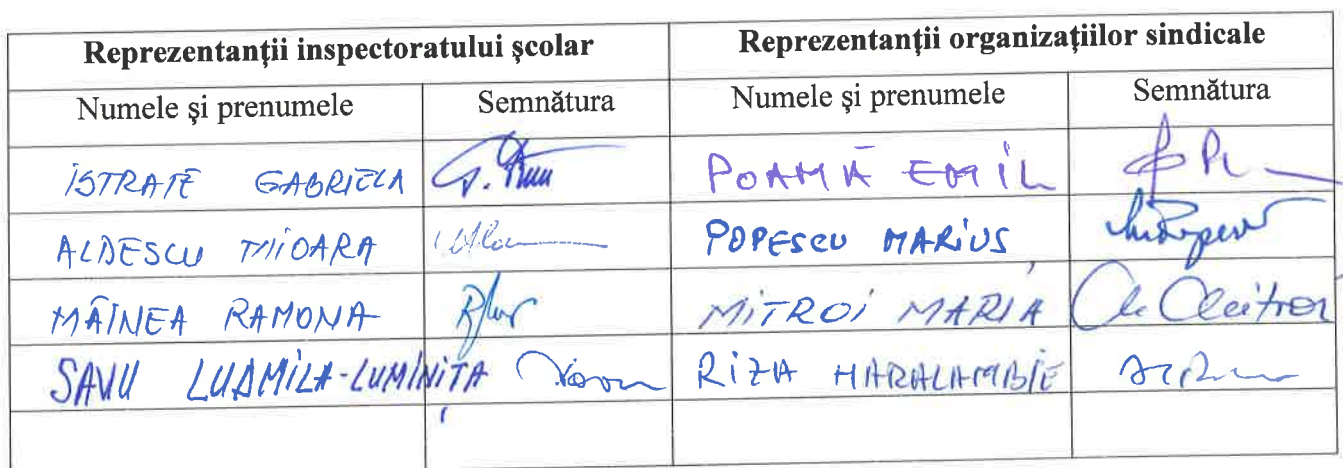 Reprezentanții inspectoratului școlar Reprezentanții organizațiilor sindicale
Numele și prenumele Semnătura Numele și prenumele Semnătura
ISTRATE GABRIELA POAMĂ EMIL
ALDESCU MIOARA POPESCU MARIUS
MÂINEA RAMONA MITROI MARIA
SAVU LUDMILA-LUMINIȚA RIZA HARALAMBIE